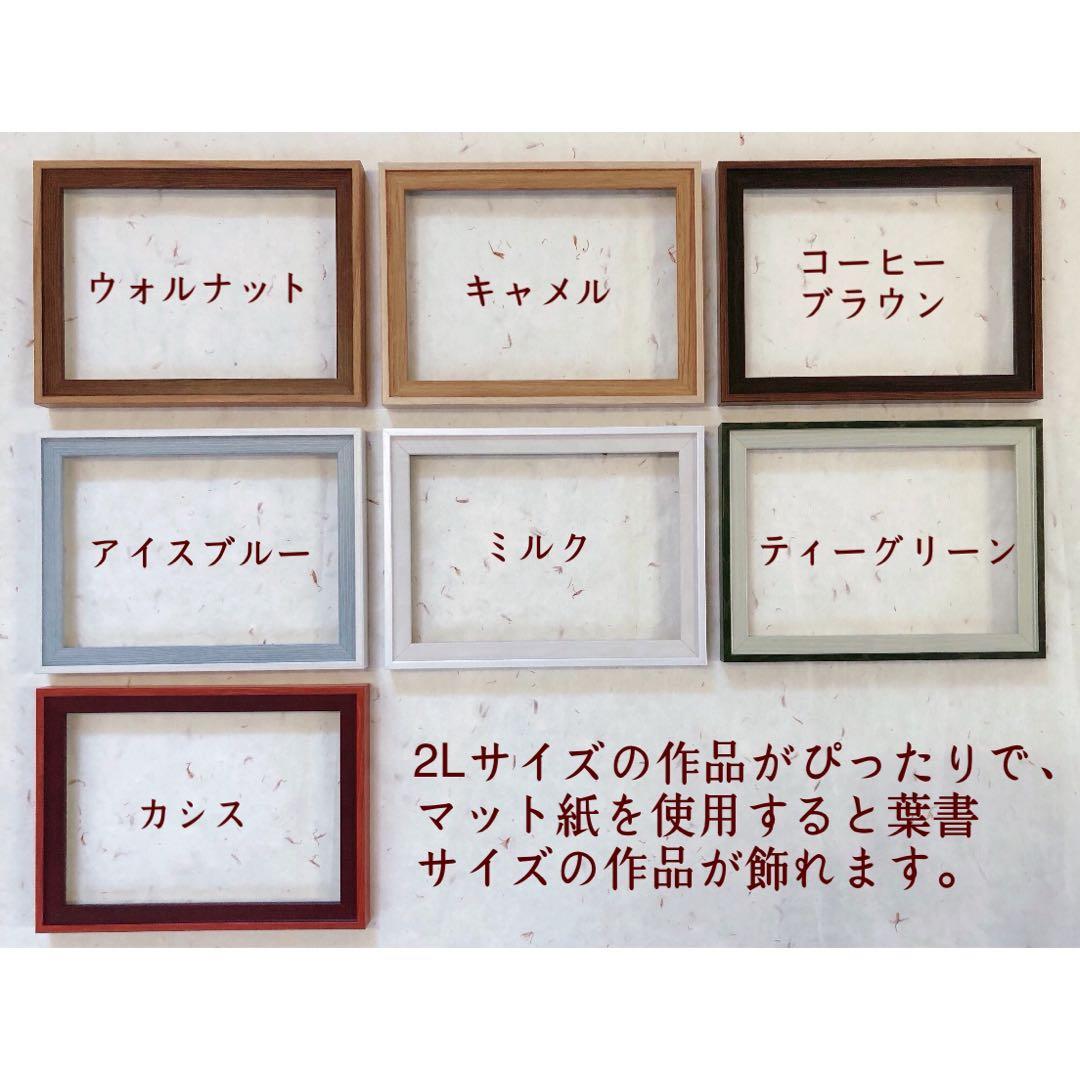 ウォルナット
キャメル
コーヒー
ブラウン
アイスブルー
ミルク
ティーグリーン
カシス
2Lサイズの作品がぴったりで、
マット紙を使用すると葉書
サイズの作品が飾れます。